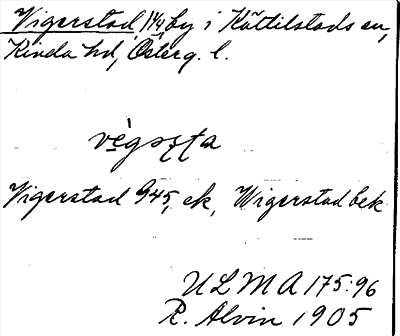 Vigerstad, 1 1/4, by i Kättilstads sn,
Kinda hd, Österg. l.
vègsta
Vigerstad G45, ek, Wigerstad bek
ULMA 175:96
R. Alvin 1905